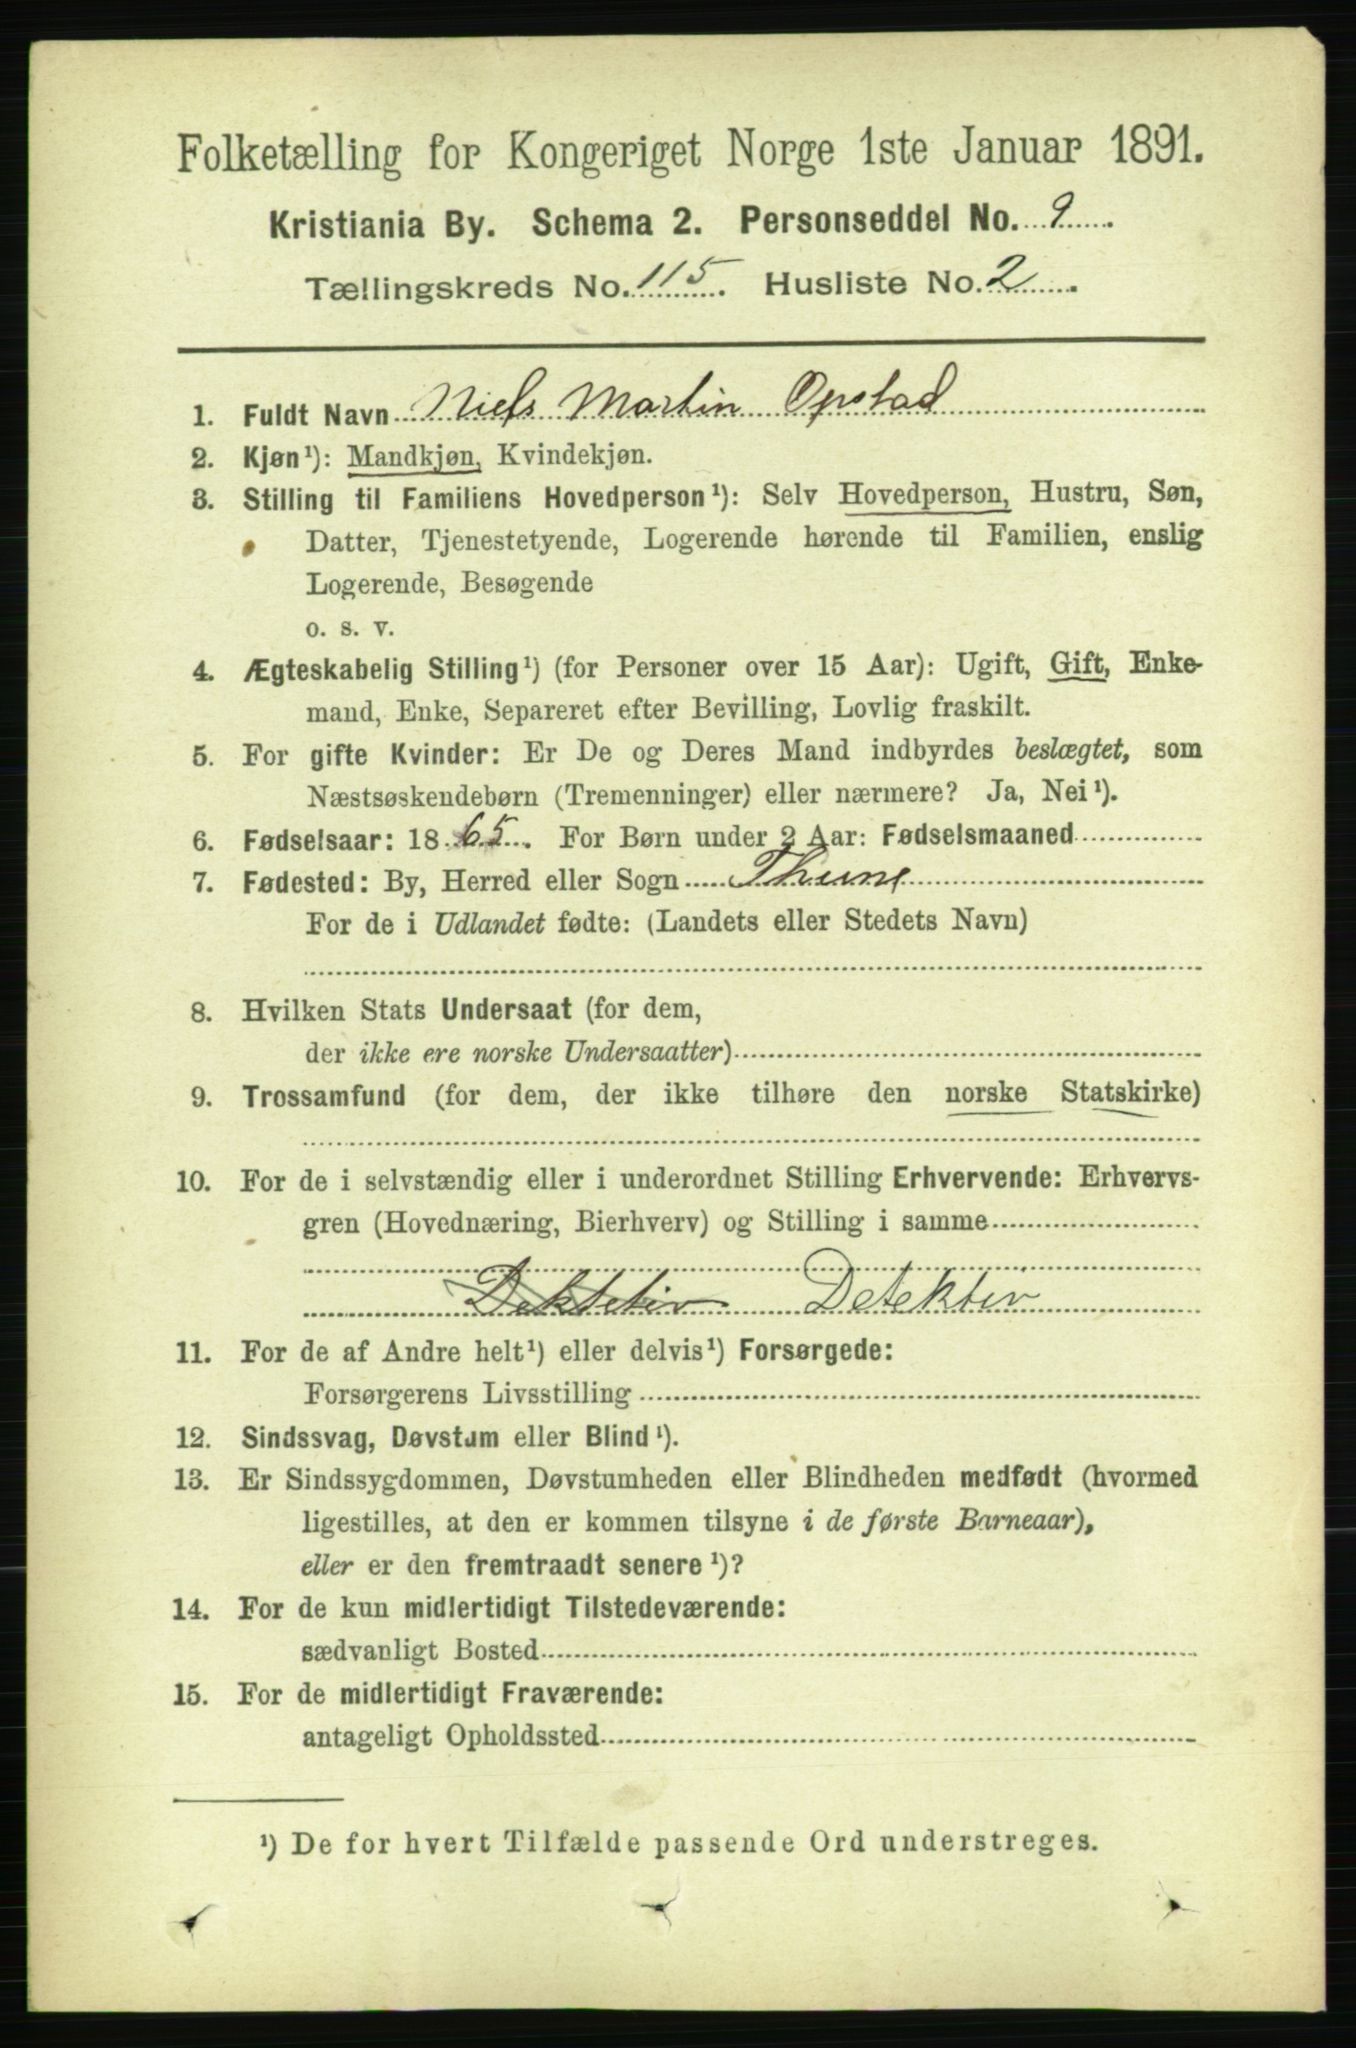 Folketælling for Kongeriget Norge 1ste Januar 1891.
Kristiania By. Schema 2. Personseddel No. 9.
Tællingskreds No. 115. Husliste No. 2.
1. Fuldt Navn Niels Martin Opstad
2. Kjøn¹): Mandkjøn, Kvindekjøn.
3. Stilling til Familiens Hovedperson¹): Selv Hovedperson, Hustru, Søn,
Datter, Tjenestetyende, Logerende hørende til Familien, enslig
Logerende, Besøgende
o. s. v.
4. Ægteskabelig Stilling¹) (for Personer over 15 Aar): Ugift, Gift, Enke-
mand, Enke, Separeret efter Bevilling, Lovlig fraskilt.
5. For gifte Kvinder: Er De og Deres Mand indbyrdes beslægtet, som
Næstsøskendebørn (Tremenninger) eller nærmere? Ja, Nei¹).
6. Fødselsaar: 1865. For Børn under 2 Aar: Fødselsmaaned
7. Fødested: By, Herred eller Sogn Thune
For de i Udlandet fødte: (Landets eller Stedets Navn)
8. Hvilken Stats Undersaat (for dem,
der ikke ere norske Undersaatter)
9. Trossamfund (for dem, der ikke tilhøre den norske Statskirke)
10. For de i selvstændig eller i underordnet Stilling Erhvervende: Erhvervs-
gren (Hovednæring, Bierhverv) og Stilling i samme
Dektetiv Detektiv
11. For de af Andre helt¹) eller delvis¹) Forsørgede:
Forsørgerens Livsstilling
12. Sindssvag, Døvstum eller Blind¹).
13. Er Sindssygdommen, Døvstumheden eller Blindheden medfødt (hvormed
ligestilles, at den er kommen tilsyne i de første Barneaar),
eller er den fremtraadt senere¹)?
14. For de kun midlertidigt Tilstedeværende:
sædvanligt Bosted
15. For de midlertidigt Fraværende:
antageligt Opholdssted
¹) De for hvert Tilfælde passende Ord understreges.